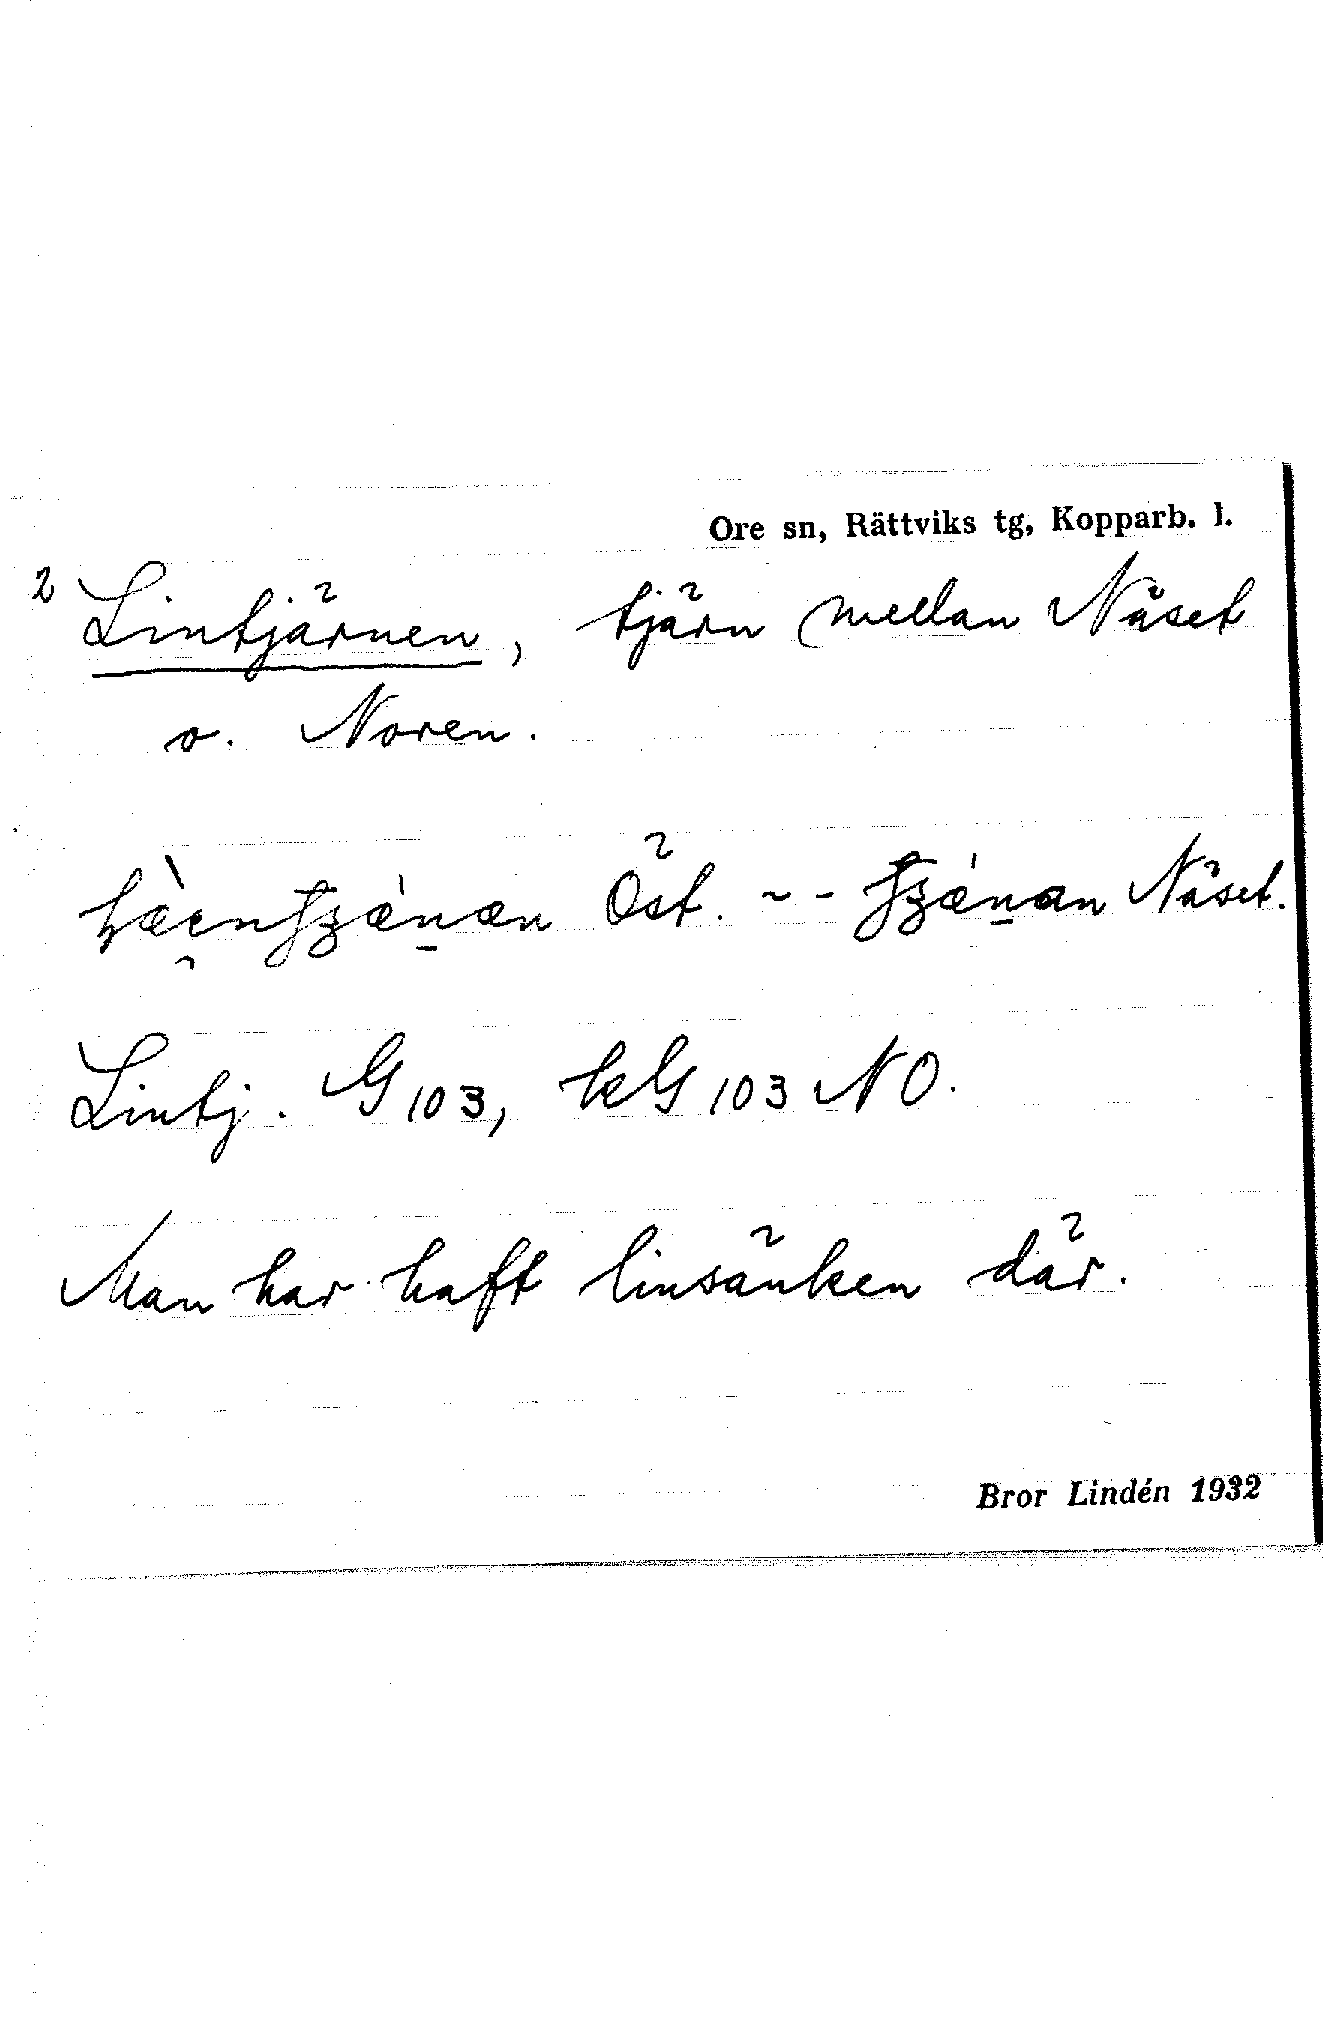 Ore sn, Rättviks tg, Kopparb. l.
2 Lintjärnen, tjärn mellan Näset
o. Noren.
Öst. ~ - Näset.
Lintj. G 103, kG 103 NO.
Man har haft linsänken där.
Bror Lindén 1932